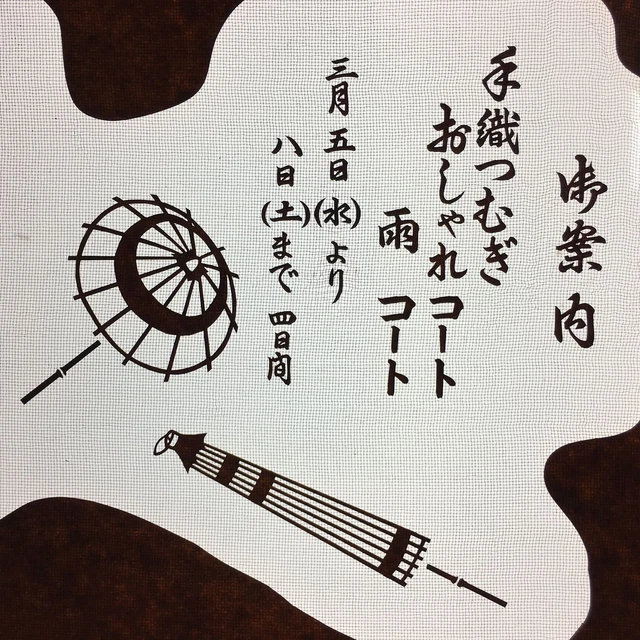 御案内
手織つむぎ
おしゃれコート
雨 コート
三月 五日(水)より
八日(土)まで 四日間